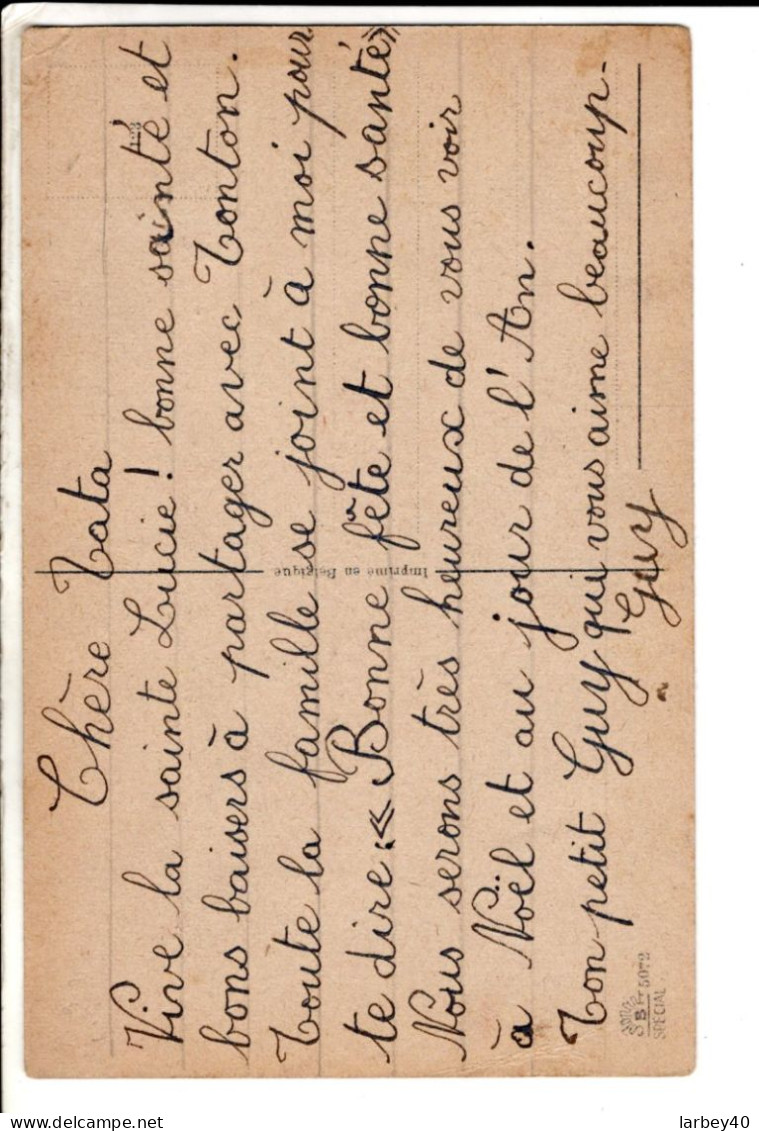 Chère Tata
Vive la sainte Lucie! bonne sainté et
bons baisers à partager avec Tonton.
Toute la famille se joint à moi pour
te dire: « Bonne fête et bonne santé»
Nous serons très heureux de vous voir
à Noël et au jour de l'An.
Ton petit Guy qui vous aime beaucoup-
Guy
Imprimé en Belgique
5072
SPECIAL
larbey40